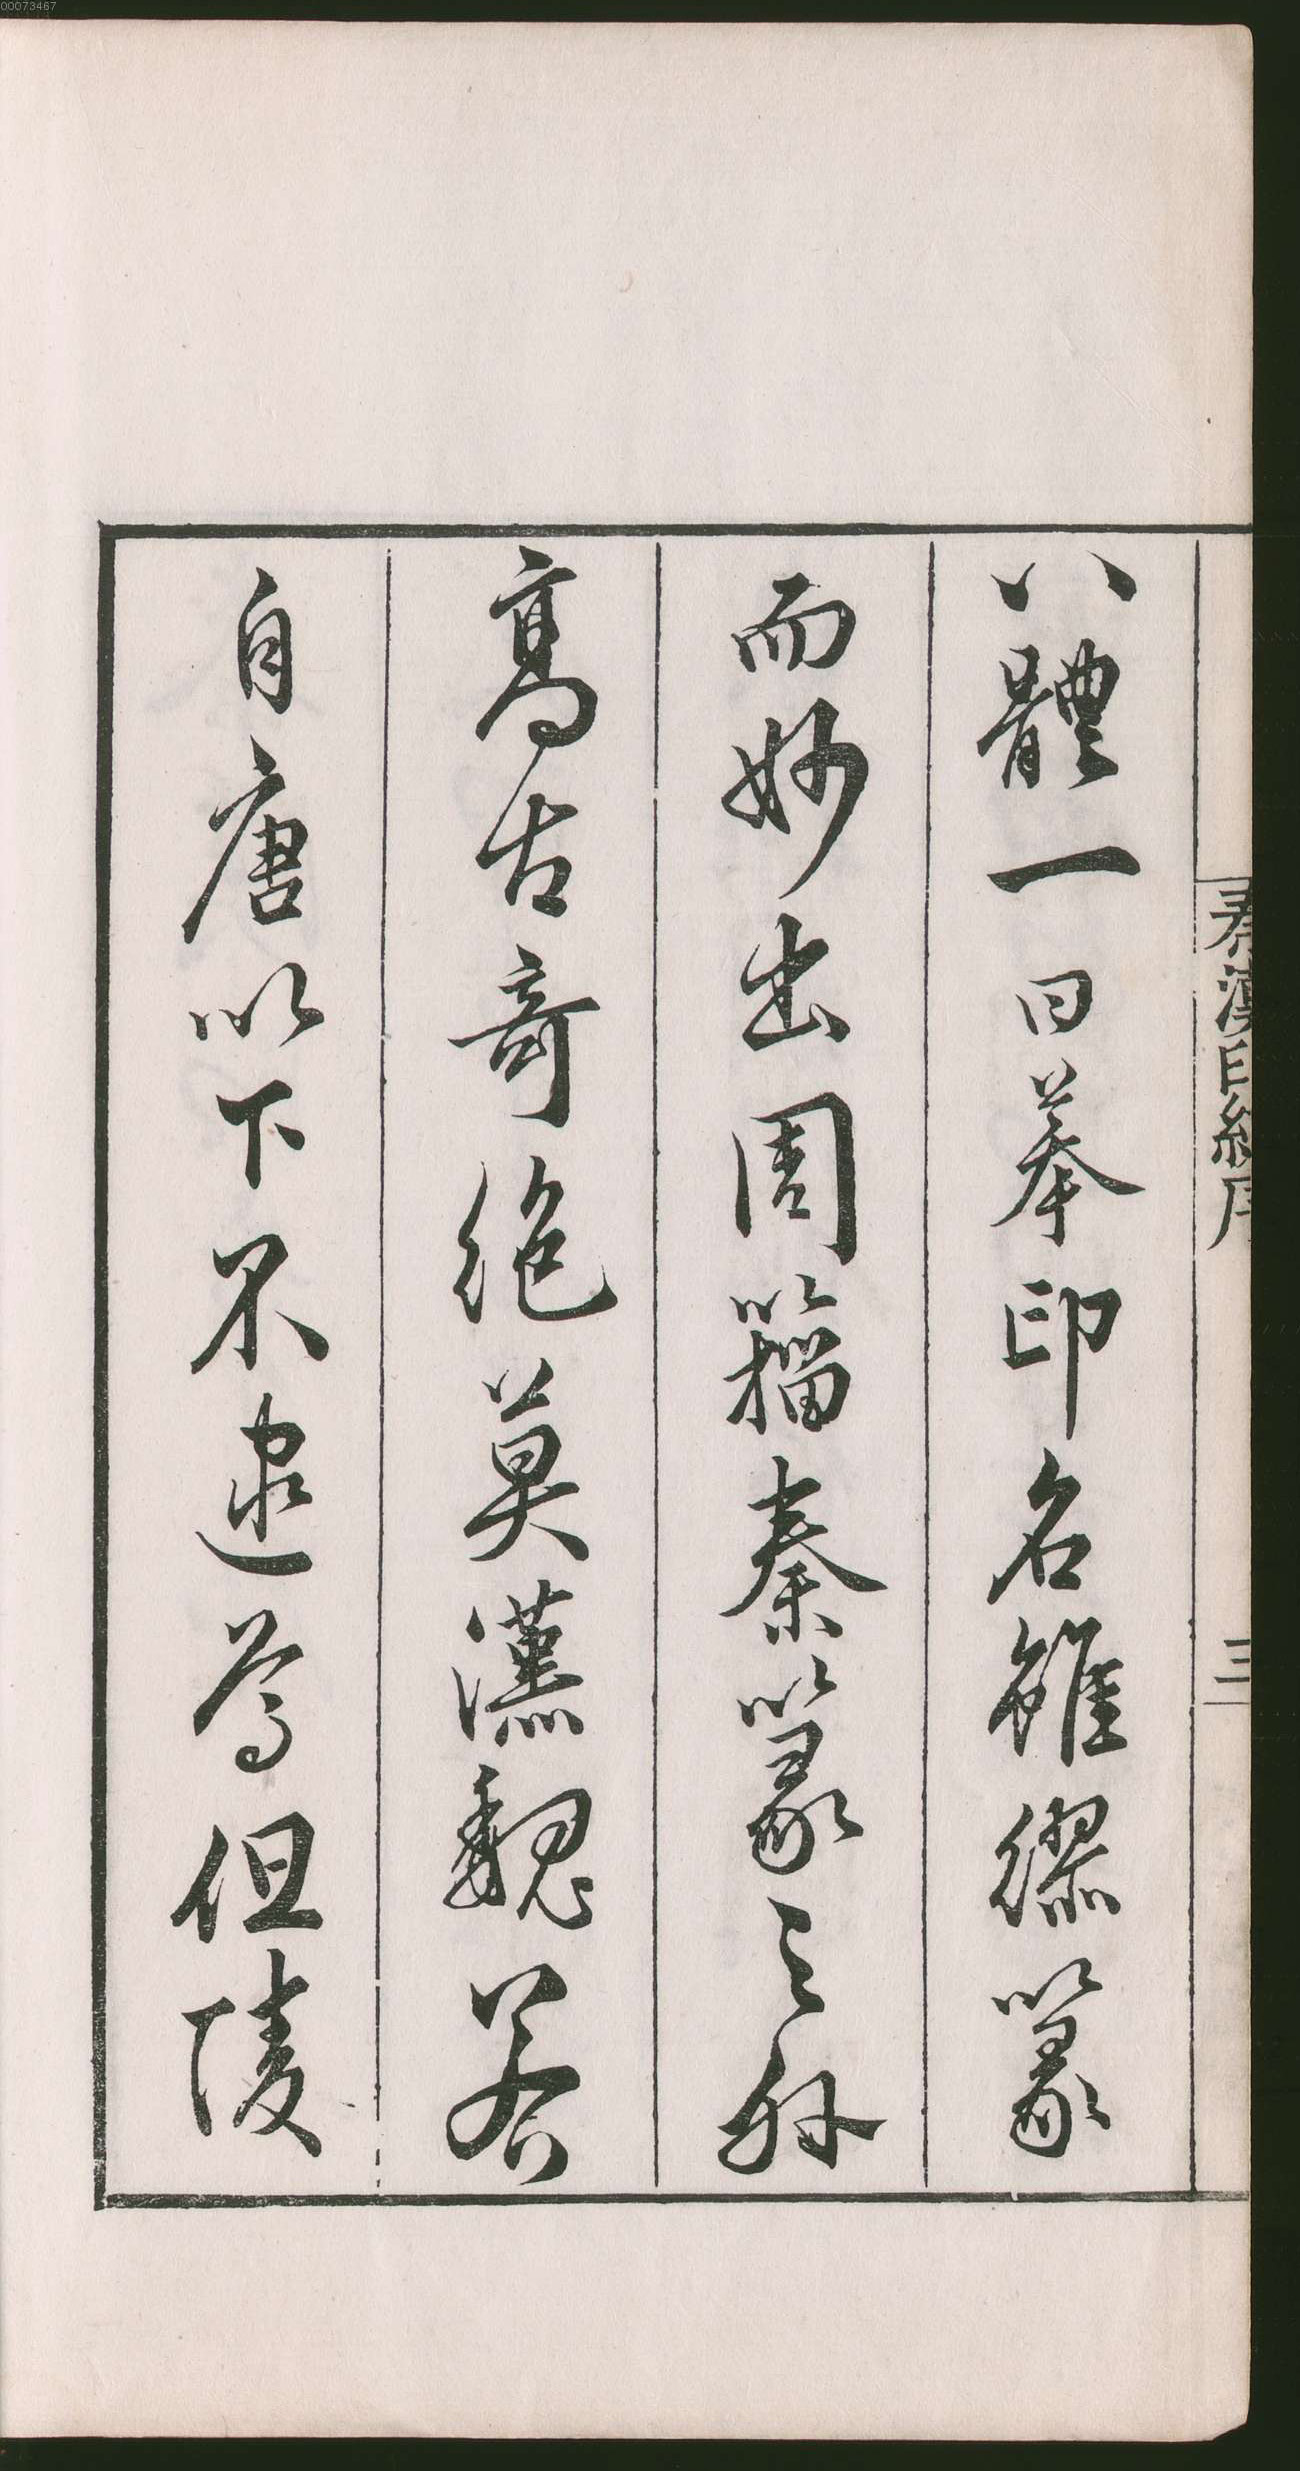 00073467
秦漢印統序
三
八體一曰摹印名雖繆篆
而妙出周籀秦篆之外
高古奇絶莫漢魏若
自唐以下不逮焉但陵